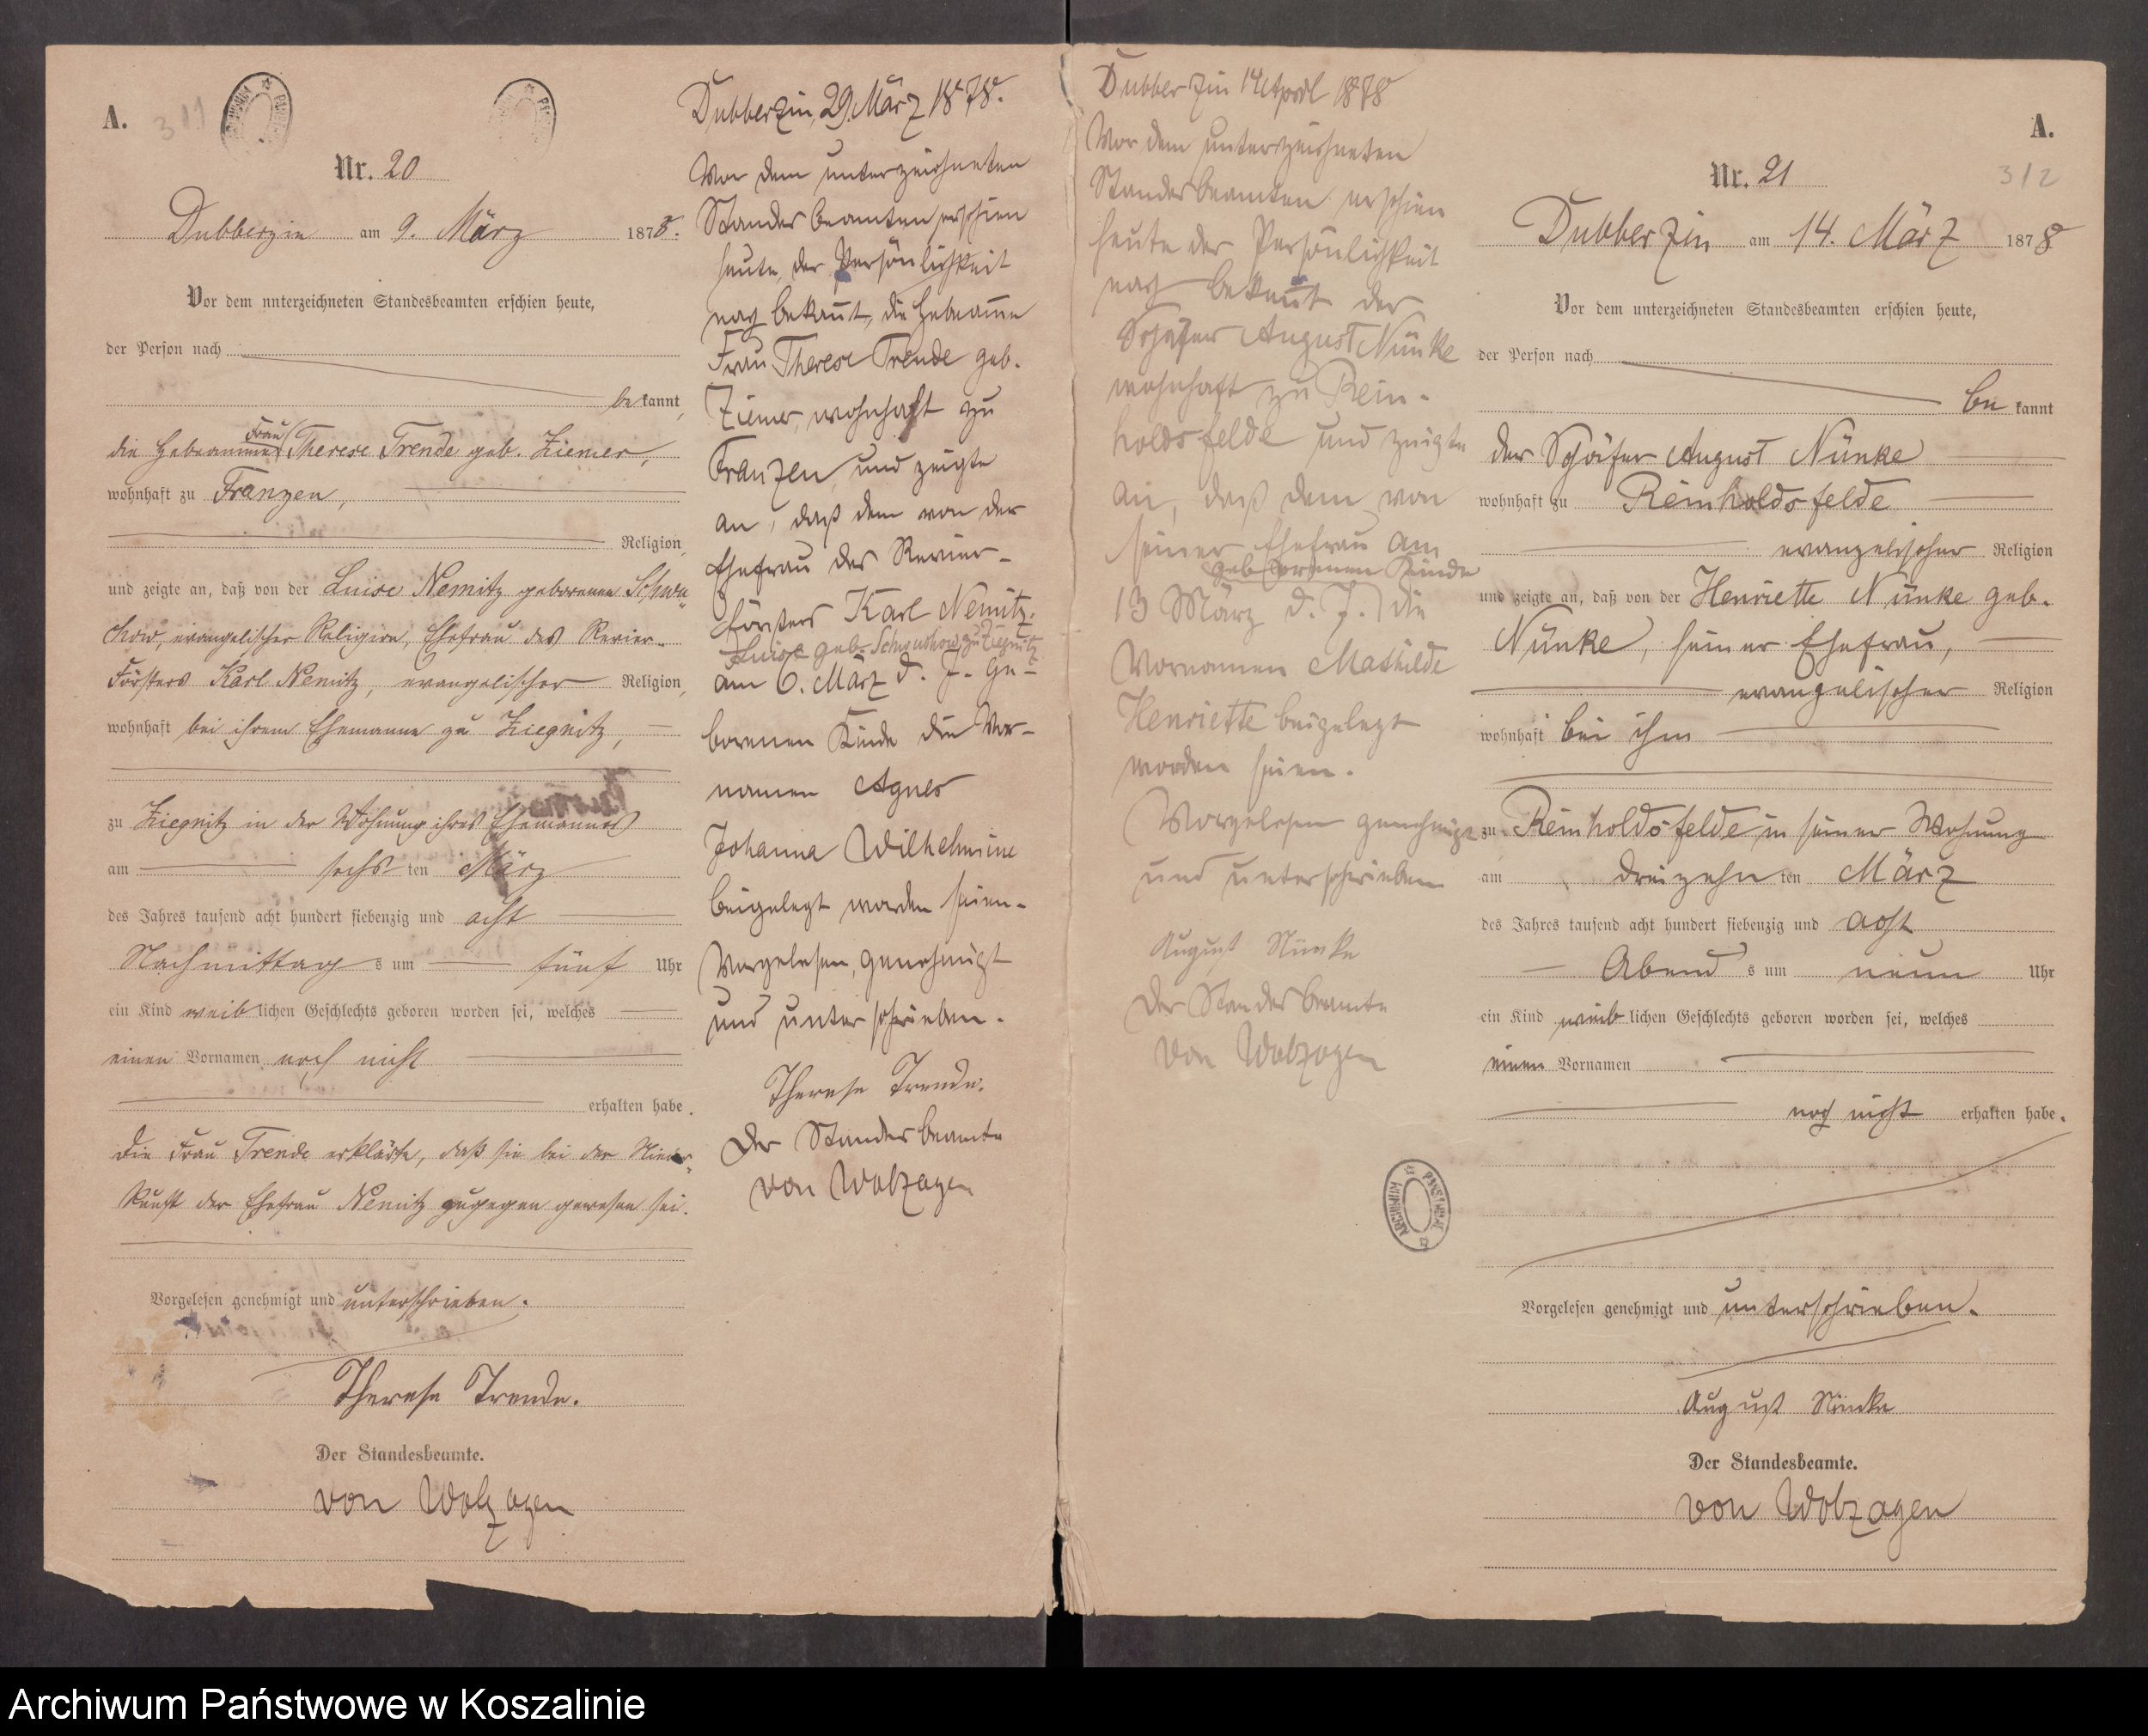 A.
311
Nr. 20
Dubberzin am 9. März 1878.
Vor dem unterzeichneten Standesbeamten erschien heute,
der Person nach
be kannt,
die Hebamme Frau Therese Trende geb. Ziemer,
wohnhaft zu Franzen,
Religion,
und zeigte an, daß von der Luise Nemitz geborenen Schwu=
chow, evangelischer Religion, Ehefrau des Revier-
Försters Karl Nemitz, evangelischer Religion,
wohnhaft bei ihrem Ehemanne zu Ziegnitz,
zu Ziegnitz in der Wohnung ihres Ehemannes
am sechs ten März
des Jahres tausend acht hundert siebenzig und acht
Nachmittag s um fünf Uhr
ein Kind weib lichen Geschlechts geboren worden sei, welches
einen Vornamen noch nicht
erhalten habe.
Die Frau Trende erklärte, daß sie bei der Nieder=
kunft der Ehefrau Nemitz zugegen gewesen sei.
Vorgelesen genehmigt und unterschrieben.
Therese Trende.
Der Standesbeamte.
von Wolzogen
Dubberzin, 29. März 1878.
Vor dem unterzeichneten
Standesbeamten erschien
heute, der Persönlichkeit
nach bekannt, die Hebamme
Frau Therese Trende geb.
Ziemer, wohnhaft zu
Franzen, und zeigte
an, daß dem von der
Ehefrau des Revier-
försters Karl Nemitz,
Luise geb. Schwuchow zu Ziegnitz
am 6. März d. J. ge-
borenen Kinde die Vor-
namen Agnes
Johanna Wilhelmine
beigelegt worden seien.
Vorgelesen, genehmigt
und unterschrieben.
Therese Trende.
Der Standesbeamte
von Wolzogen
Dubberzin 14 April 1878
Vor dem unterzeichneten
Standesbeamten erschien
heute der Persönlichkeit
nach bekannt der
Schäfer August Nünke
wohnhaft zu Rein-
holdsfelde und zeigte
an, daß dem von
seiner Ehefrau am
geborenen Kinde
13 März d. J. die
Vornamen Mathilde
Henriette beigelegt
worden seien.
Vorgelesen genehmigt
und unterschrieben
August Nünke
Der Standesbeamte
von Wolzogen
A.
312
Nr. 21
Dubberzin am 14. März 1878
Vor dem unterzeichneten Standesbeamten erschien heute,
der Person nach
be kannt
der Schäfer August Nünke
wohnhaft zu Reinholdsfelde
evangelischer Religion
und zeigte an, daß von der Henriette Nünke geb.
Nünke, seiner Ehefrau,
evangelischer Religion
wohnhaft bei ihm
zu Reinholdsfelde in seiner Wohnung
am dreizehn ten März
des Jahres tausend acht hundert siebenzig und acht
Abend s um neun Uhr
ein Kind weib lichen Geschlechts geboren worden sei, welches
einen Vornamen
noch nicht erhalten habe.
Vorgelesen genehmigt und unterschrieben.
August Nünke
Der Standesbeamte.
von Wolzogen
Archiwum Państwowe w Koszalinie